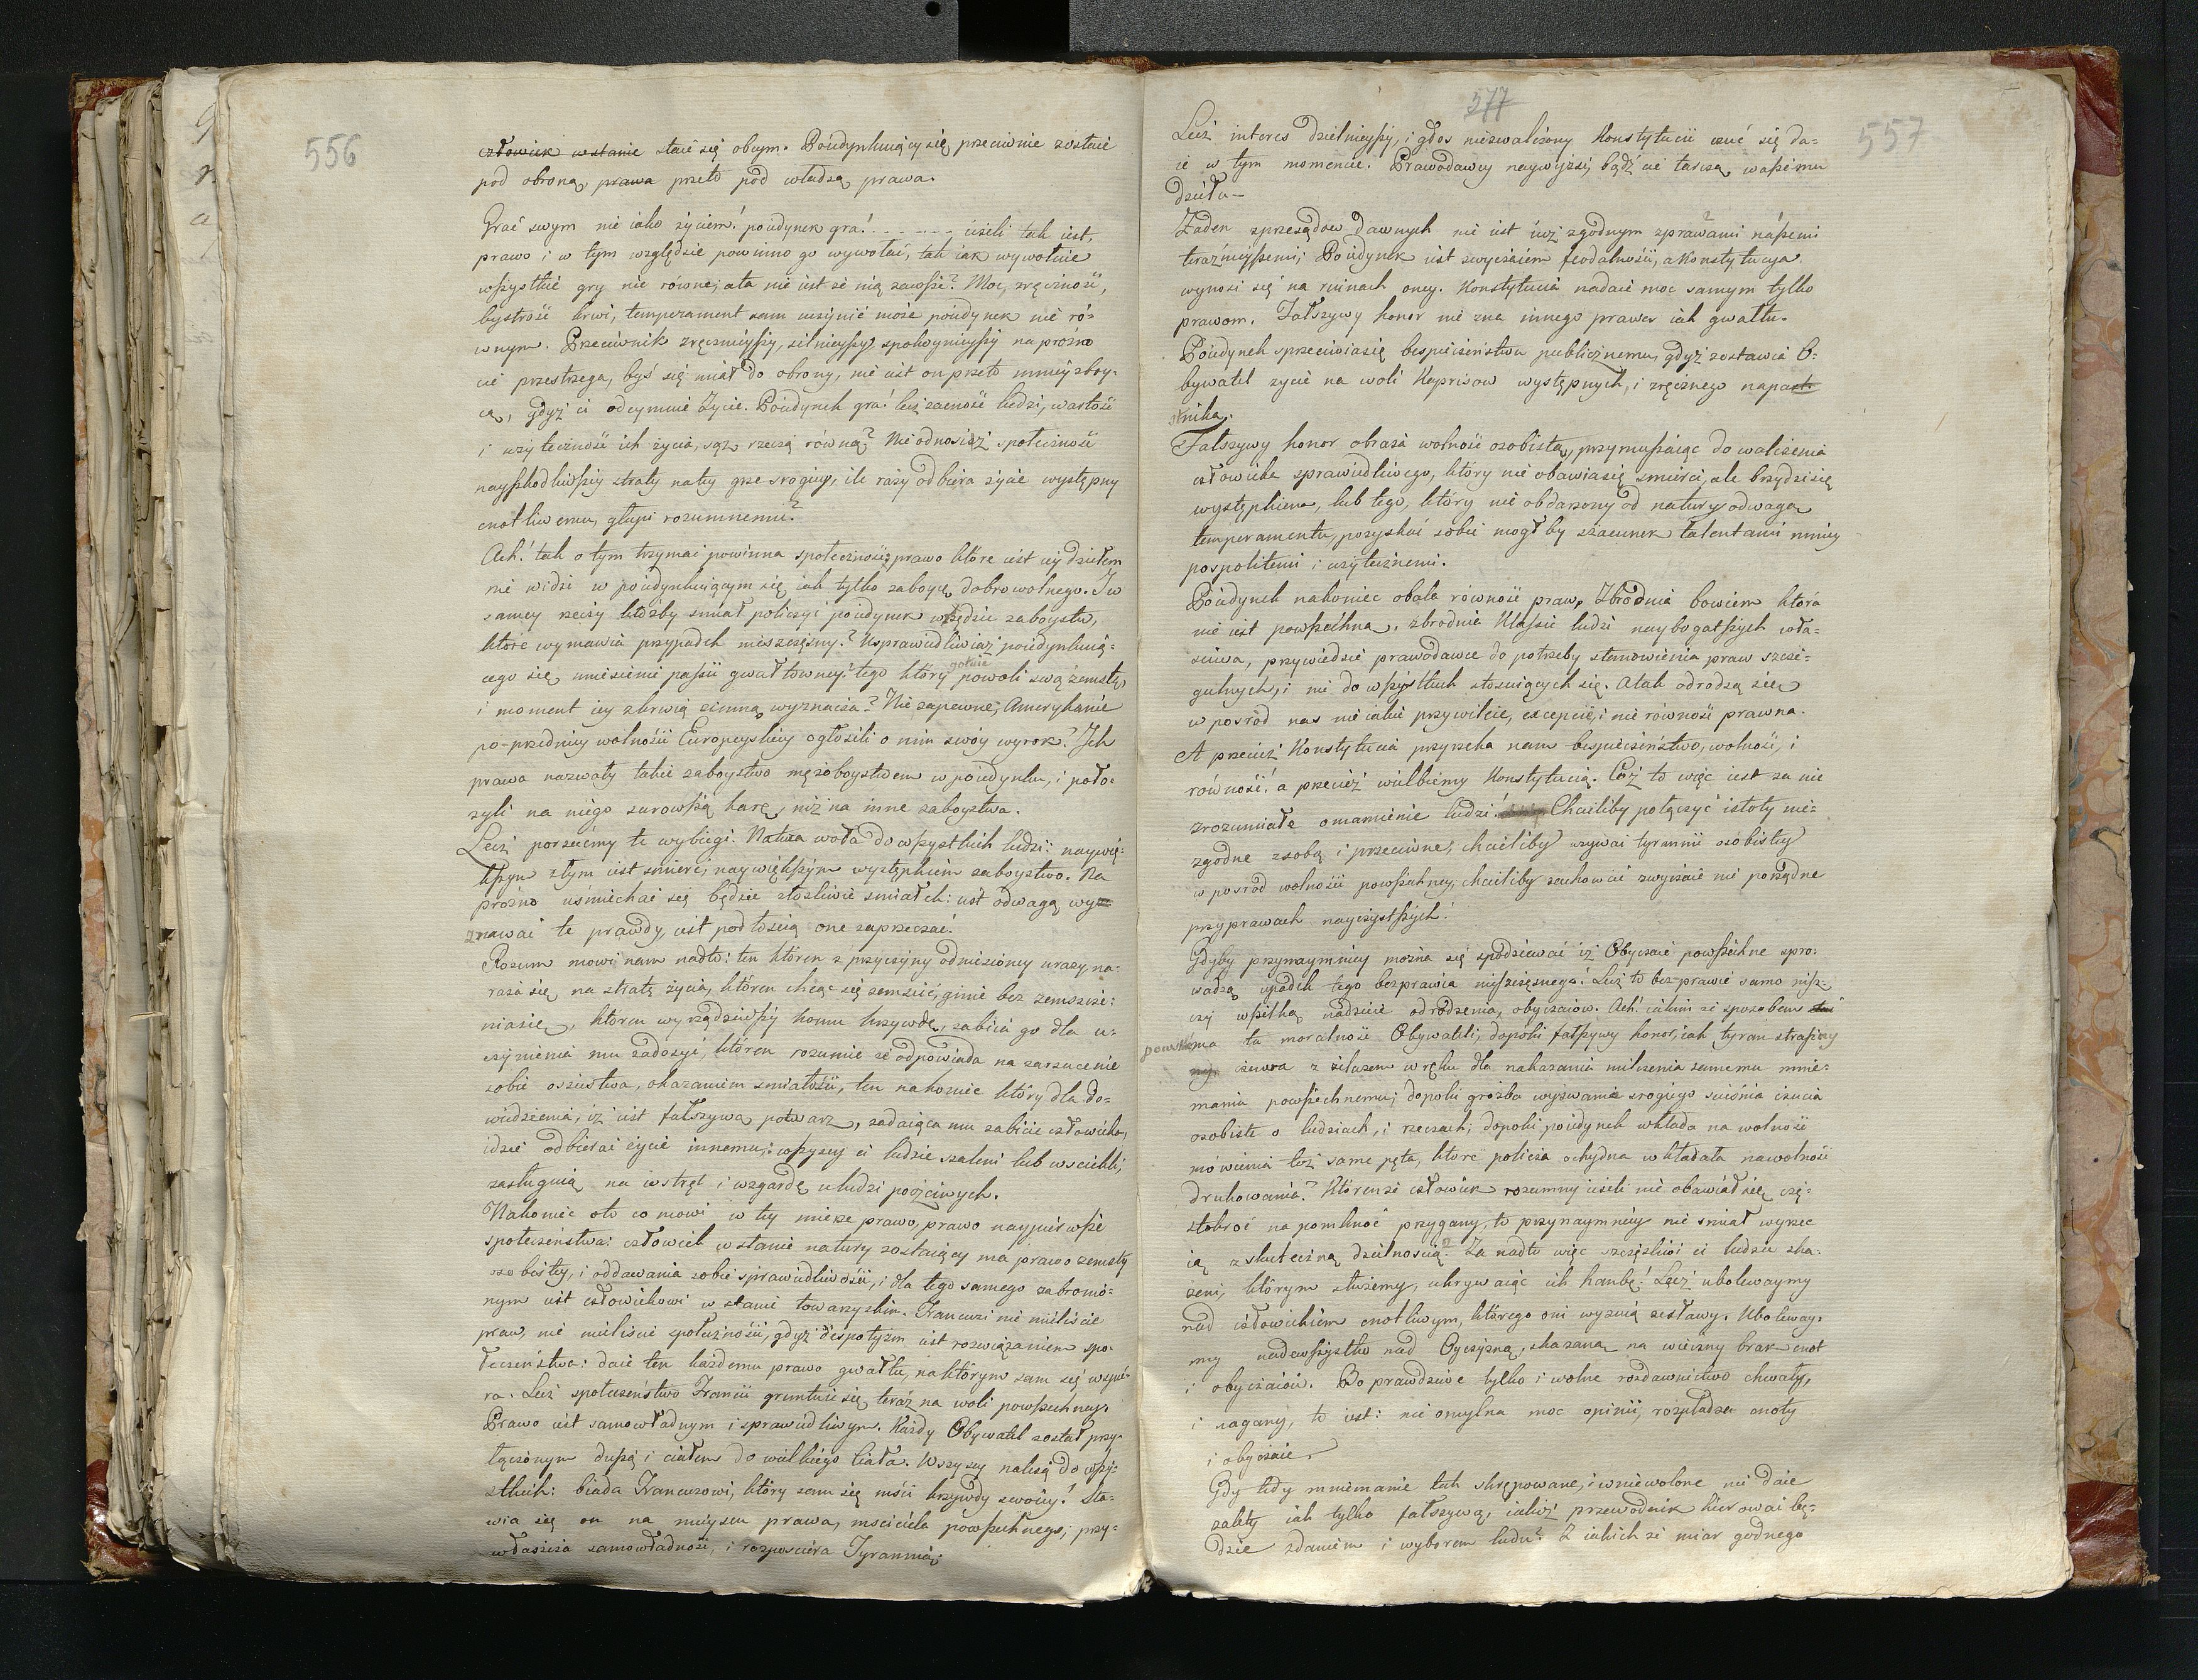 556
człowiek wstanie staie się obcym. Poiedynkuiący się przeciwnie zostaie
pod obroną, prawa przeto pod władzą prawa.
Grać swym nie iako życiem! poiedynek gra! - - - - - - ieżeli tak iest,
prawo i w tym względzie powinno go wywołać, tak iak wywołuie
wszystkie gry nie równe; a ta nie iest że nią zawsze? Moc, zręczność,
bystrość krwi, temperament sam uczynić może poiedynek nie ró=
wnym. Przeciwnik zręcznieyszy, silnieyszy spokoynieyszy na próżno
cię przestrzega, byś się miał do obrony, nie iest on przeto mniey zboy=
cą, gdyż ci odeymuie Życie. Poiedynek gra! lecz zacność ludzi, wartość
i użyteczność ich życia, sąż rzeczą równą? Nie odnosiż społeczność
nayszkodliwszey straty na tey grze srogiey, ile razy odbiera życie występny
cnotliwemu, głupi rozumnemu?
Ach! tak o tym trzymać powinna społeczność; prawo które iest iey dziełem
nie widzi w poiedynkuiącym się iak tylko zaboycę dobrowolnego. I w
samey rzeczy któżby śmiał policzyć poiedynek w rzędzie zaboystw,
które wymawia przypadek nieszczęsny? Usprawiedliwiaż poiedynkuią=
cego się, uniesienie passii gwałtowney? tego który powoli gotuie swą zemstę,
i moment iey z krwią zimną wyznacza? Nie zapewne; Amerykanie
po-przednicy wolności Europeyskiey ogłosili o nim swóy wyrok? Ich
prawa nazwały takie zaboystwo mężoboystwem w poiedynku, i poło=
żyli na niego surowszą karę, niż na inne zaboystwa.
Lecz porzućmy te wybiegi. Natura woła do wszystkich ludzi: naywię=
kszym złym iest śmierć, naywiększym występkiem zaboystwo. Na
próżno uśmiechać się będzie złośliwie śmiałek: iest odwagą wy=
znawać te prawdy, iest podłością one zaprzeczać!
Rozum mowi nam nadto: ten któren z przyczyny odniesioney urazy na=
raża się na stratę życia, któren chcąc się zemścić, ginie bez zemszcze=
nia się, któren wyrządziwszy komu krzywdę, zabiia go dla u=
czynienia mu zadosyć, któren rozumie że odpowiada na zarzucenie
sobie oszustwa, okazaniem śmiałości, ten nakoniec który dla do=
wiedzenia, iż iest fałszywą potwarz, zadaiąca mu zabicie człowieka,
idzie odbierać życie innemu; wszyscy ci ludzie szaleni lub wściekli,
zasługuią na wstręt i wzgardę u ludzi poczciwych.
Nakoniec oto co mowi w tey mierze prawo, prawo naypierwsze
społeczeństwa: człowiek w stanie natury zostaiący ma prawo zemsty
osobistey, i oddawania sobie sprawiedliwości, i dla tego samego zabronio=
nym iest człowiekowi w stanie towarzyskim. Francuzi nie mieliście
praw, nie mieliście społeczności, gdyż despotyzm iest rozwiązaniem spo=
łeczeństwa: daie ten każdemu prawo gwałtu, na którym sam się wspie=
ra. Lecz społeczeństwo Francii gruntuie się teraz na woli powszechney.
Prawo iest samowładnym i sprawiedliwym. Każdy Obywatel został przy=
łączonym duszą i ciałem do wielkiego Ciała. Wszyscy należą do wszy=
stkich: biada Francuzowi, który sam się mści krzywdy swoiey! Sta=
wia się on na mieyscu prawa, mściciela powszechnego; przy=
właszcza samowładność, i rozpościera Tyrannią;
577
557
Lecz interes dzielnieyszy, i głos niezwalczony Konstytucii czuć się da=
ie w tym momencie. Prawodawcy naywyżsi, bądźcie tarczą waszemu
dziełu—
Żaden z przesądow Dawnych nie iest iuż zgodnym z prawami naszemi
teraźnieyszemi; Poiedynek iest zwyczaiem feodalności, a Konstytucya
wynosi się na ruinach oney. Konstytucia nadaie moc samym tylko
prawom. Fałszywy honor nie zna innego prawa iak gwałtu.
Poiedynek sprzeciwia się bespieczeństwu publicznemu, gdyż zostawia O=
bywatel życie na woli Kaprisow występnych, i zręcznego napast=
nika.
Fałszywy honor obraża wolność osobistą, przymuszaiąc do walczenia
człowieka sprawiedliwego, który nie obawia się śmierci, ale brzydzi się
występkiem, lub tego, który nie obdarzony od natury odwagą
temperamentu, pozyskać sobie mogłby szacunek talentami mniey
pospolitemi i użytecznemi.
Poiedynek nakoniec obala równość praw, Zbrodnia bowiem która
nie iest powszechna, zbrodnia Klassie ludzi naybogatszych wła=
ściwa, przywiedzie prawodawce do potrzeby stanowienia praw szcze=
gulnych, i nie do wszystkich stosuiących się. A tak odrodzą się
w pośród nas nie iakie przywileie, excepcie, i nie równość prawna.
A przecież Konstytucia przyrzeka nam bespieczeństwo, wolność, i
równość! a przecież wielbiemy Konstytucią. Cóż to więc iest za nie
zrozumiałe omamienie ludzi! Chcieliby połączyć istoty nie=
zgodne z sobą i przeciwne, chcieliby używać tyrannii osobistey
w pośród wolności powszechney, chcieliby zachować zwyczaie nie porządne
przy prawach nayczystszych!
Gdyby przynaymniey można się spodziewać iż Obyczaie powszechne spro=
wadzą upadek tego bezprawia nieszczęsnego! Lecz to bez-prawie samo nisz=
czy wszelką nadzieie odrodzenia, obyczaiow. Ach! iakim że sposobem
powstać ma ta moralność Obywateli, dopoki fałszywy honor, iak tyran straszny
czuwa z żelazem w ręku dla nakazania milczenia samemu mnie=
maniu powszechnemu; dopoki groźba wyzwania srogiego ściśnia czucia
osobiste o ludziach, i rzeczach; dopoki poiedynek wkłada na wolność
mówienia też same pęta, które policia ochydna wkładała na wolność
drukowania? Którenże człowiek rozumny ieżeli nie obawiał się czę=
stokroć napomknoć przygany, to przynaymniey nie śmiał wyrzec
ią z skuteczną dzielnością? Za nadto więc szczęśliwi ci ludzie ska=
żeni, którym służemy, ukrywaiąc ich hańbę! Lecz ubolewaymy
nad człowiekiem cnotliwym, którego oni wyzuią ze sławy. Uboleway=
my nadewszystko nad Oyczyzną, skazaną na wieczny brak cnot
i obyczaiów. Bo prawdziwe tylko i wolne rozdawnictwo chwały,
i nagany, to iest: nie omylna moc opinii, rozpładza cnoty
i obyczaie.
Gdy tedy mniemanie tak skrępowane, i wniewolone nie daie
zalety iak tylko fałszywą, iakiż przewodnik kierować bę=
dzie zdaniem i wyborem ludu? Z iakich że miar godnego